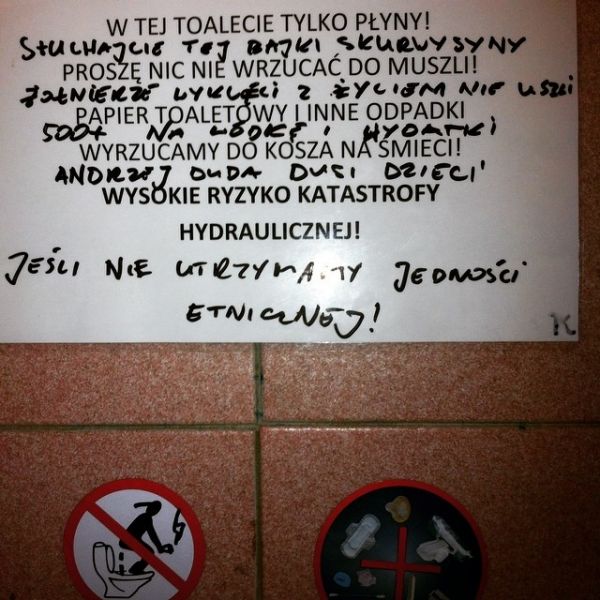 W TEJ TOALECIE TYLKO PŁYNY!
SŁUCHAJCIE TEJ BAJKI SKURWYSYNY
PROSZĘ NIC NIE WRZUCAĆ DO MUSZLI!
ŻOŁNIERZE WYKLĘCI Z ŻYCIEM NIE USZLI
PAPIER TOALETOWY I INNE ODPADKI
500+ NA WÓDKĘ I WYDATKI
WYRZUCAMY DO KOSZA NA ŚMIECI!
ANDRZEJ DUDA DUSI DZIECI
WYSOKIE RYZYKO KATASTROFY
HYDRAULICZNEJ!
JEŚLI NIE UTRZYMAMY JEDNOŚCI
ETNICZNEJ!
K